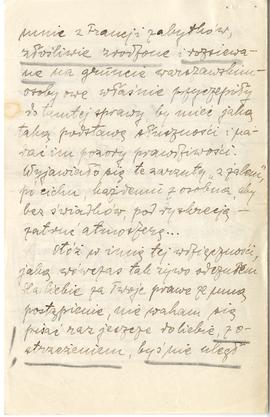 mnie z Francji zabytków,
złośliwie zrodzone i rozsiewa-
ne na gruncie warszawskim
osoby owe właśnie przyczepiły
do tamtej sprawy by mieć jaką
taką podstawę słuszności i nada-
rać im pozory prawdziwości.
Wyjawiało się te zarzuty, "z żalem",
po cichu, każdemu z osobna, aby
bez świadków, pod dyskrecją –
zatruć atmosferę...
Otóż w imię tej wdzięczności,
jaką wówczas tak żywo odczułem
dla Ciebie za Twoje prawe ze mną
postąpienie, nie waham się
pisać raz jeszcze do Ciebie, z o-
strzeżeniem, byś nie uległ